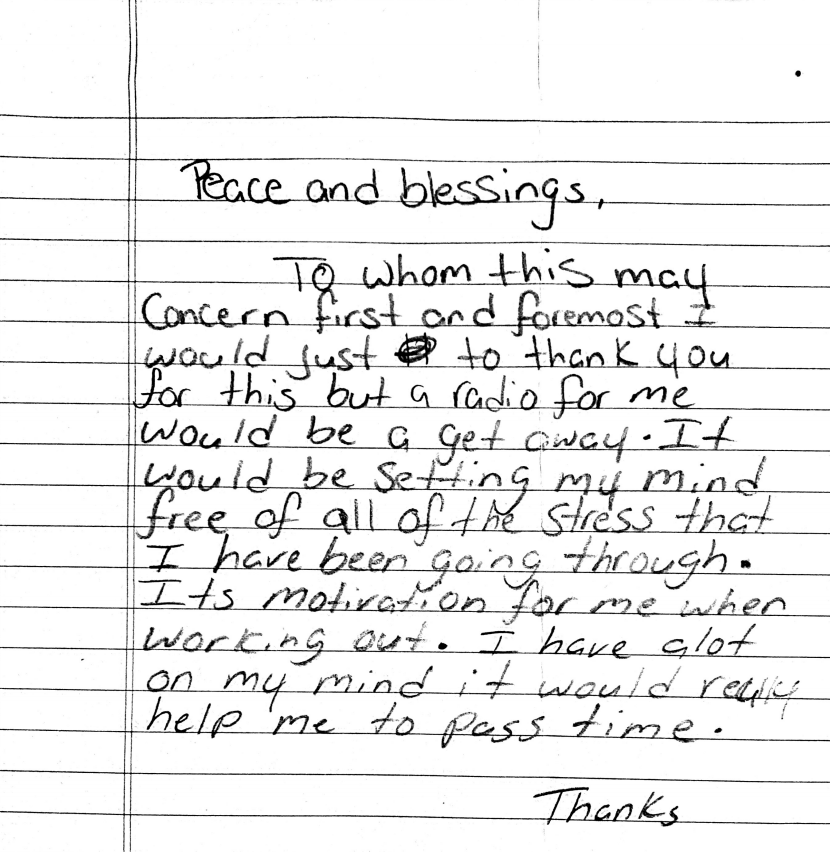 Peace and blessings,
To whom this may
Concern first and foremost I
would just to thank you
for this but a radio for me
would be a get away. It
would be setting my mind
free of all of the stress that
I have been going through.
Its motivation for me when
working out. I have alot
on my mind it would really
help me to pass time.
Thanks